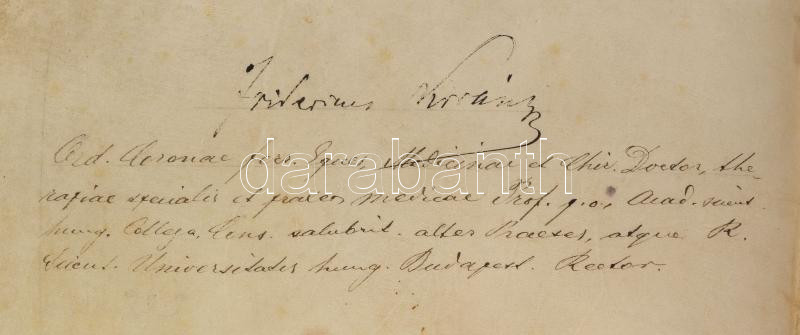 Fridericus Korányi
Ord. Coronae ferr. Eques, Medicinae et Chir. Doctor, the-
rapiae specialis et praxeos medicae Prof. p. o., Acad. scient.
hung. Collega, Cons. salubrit. alter Praeses, atque R.
Scient. Universitatis hung. Budapest. Rector.
darabanth